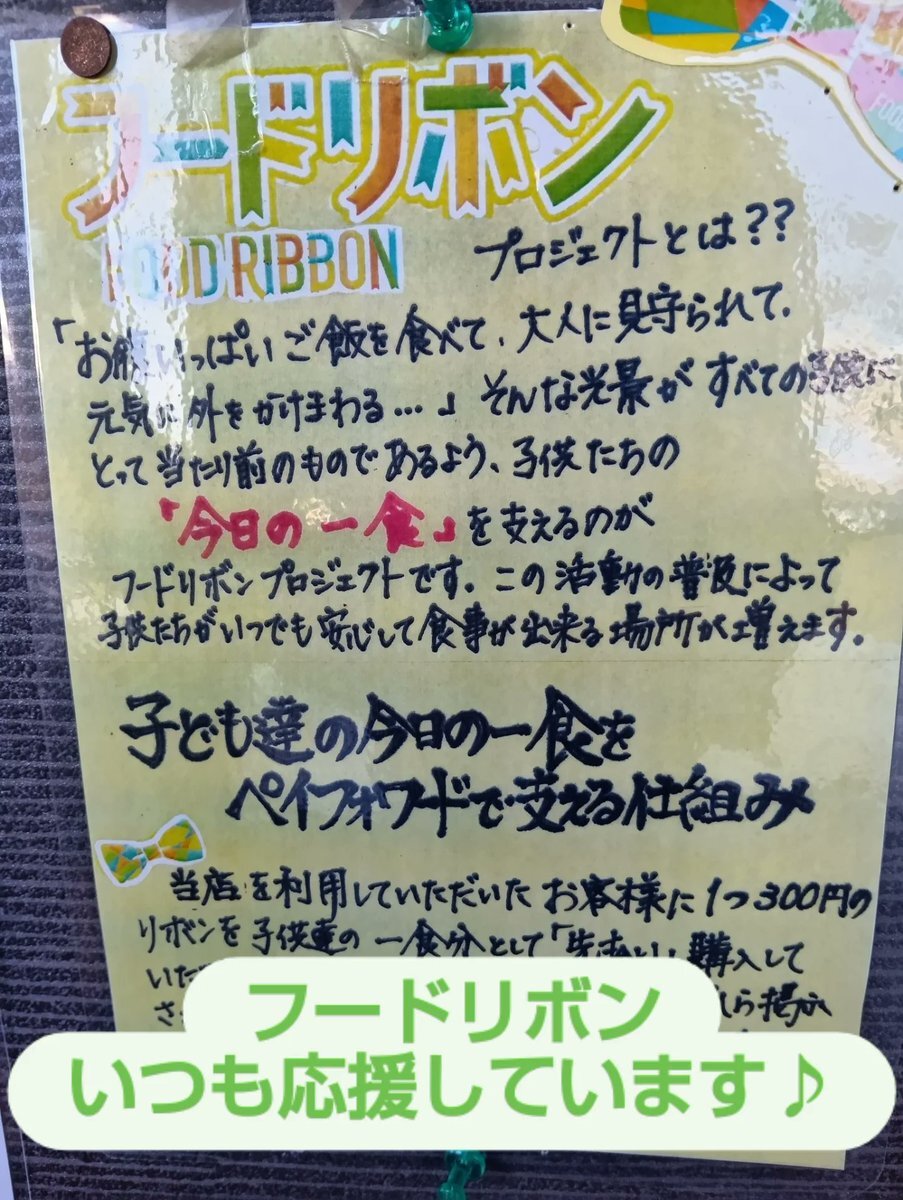 フードリボン
FOOD RIBBON
プロジェクトとは??
「お腹いっぱいご飯を食べて、大人に見守られて、
元気に外をかけまわる…」そんな光景がすべての
とって当たり前のものであるよう、子供たちの
「今日の一食」を支えるのが
フードリボンプロジェクトです。この活動の普及によって
子供たちがいつでも安心して食事が出来る場所が増えます。
子ども達の今日の一食を
ペイフォワードで支える仕組み
当店を利用していただいたお客様に1つ300円の
リボンを子供達の一食分として「先払い」購入して
いた
さ
フードリボン
いつも応援しています♪